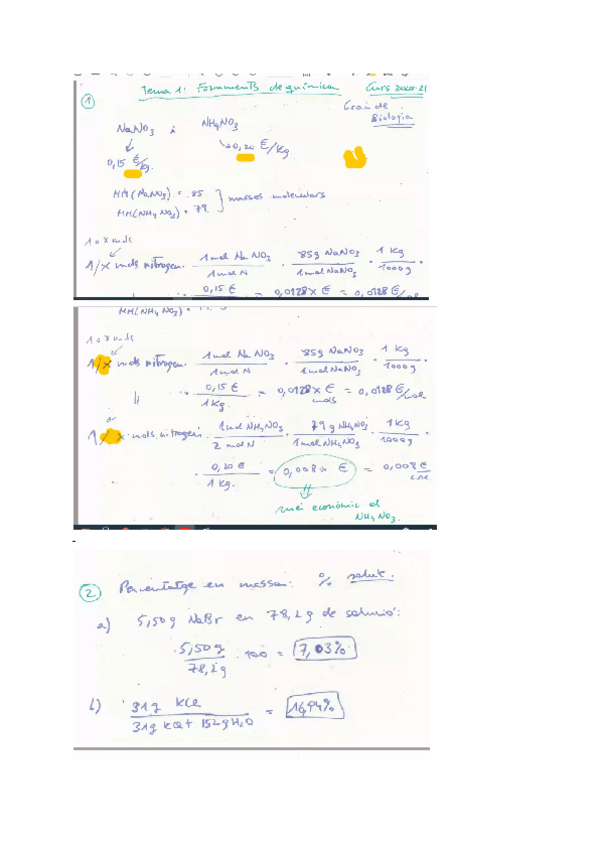 Tema 1: Fonaments de química Curs 2020-21
1
Grau de Biologia
NaNO3 i NH4NO3
0,15 €/Kg. 0,20 €/Kg
MM(NaNO3) = 85
MM(NH4NO3) = 79
} masses moleculars
1 o x mols
1/x mols nitrogen · 1 mol NaNO3 / 1 mol N · 85g NaNO3 / 1 mol NaNO3 · 1 Kg / 1000 g ·
0,15 € = 0,0128 x € = 0,0128 €/mol
MM(NH4NO3) =
1 o x mols
1/x mols nitrogen · 1 mol NaNO3 / 1 mol N · 85g NaNO3 / 1 mol NaNO3 · 1 Kg / 1000 g ·
· 0,15 € / 1 Kg. = 0,0128 x € / mols = 0,0128 €/mol
1/x mols nitrogen · 1 mol NH4NO3 / 2 mol N · 79 g NH4NO3 / 1 mol NH4NO3 · 1 Kg / 1000 g ·
· 0,20 € / 1 Kg. = 0,008 x € = 0,008 €
més econòmic el
NH4NO3.
2 Percentatge en massa: % solut.
a) 5,50g NaBr en 78,2g de solució:
5,50g / 78,2g · 100 = 7,03%
b) 31g KCl / 31g KCl + 152g H2O = 16,94%